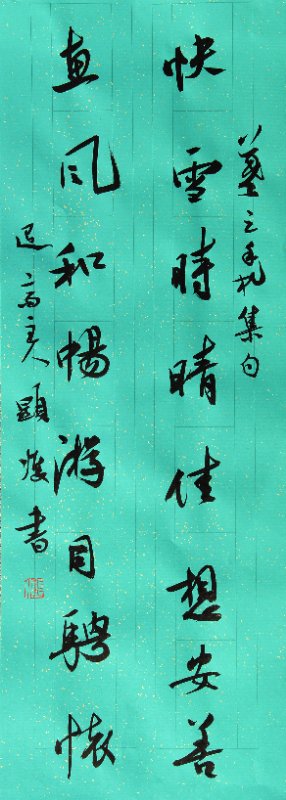 羲之手札集句
快雪時晴佳想安善
惠風和暢游目騁懷
主人顯獲書